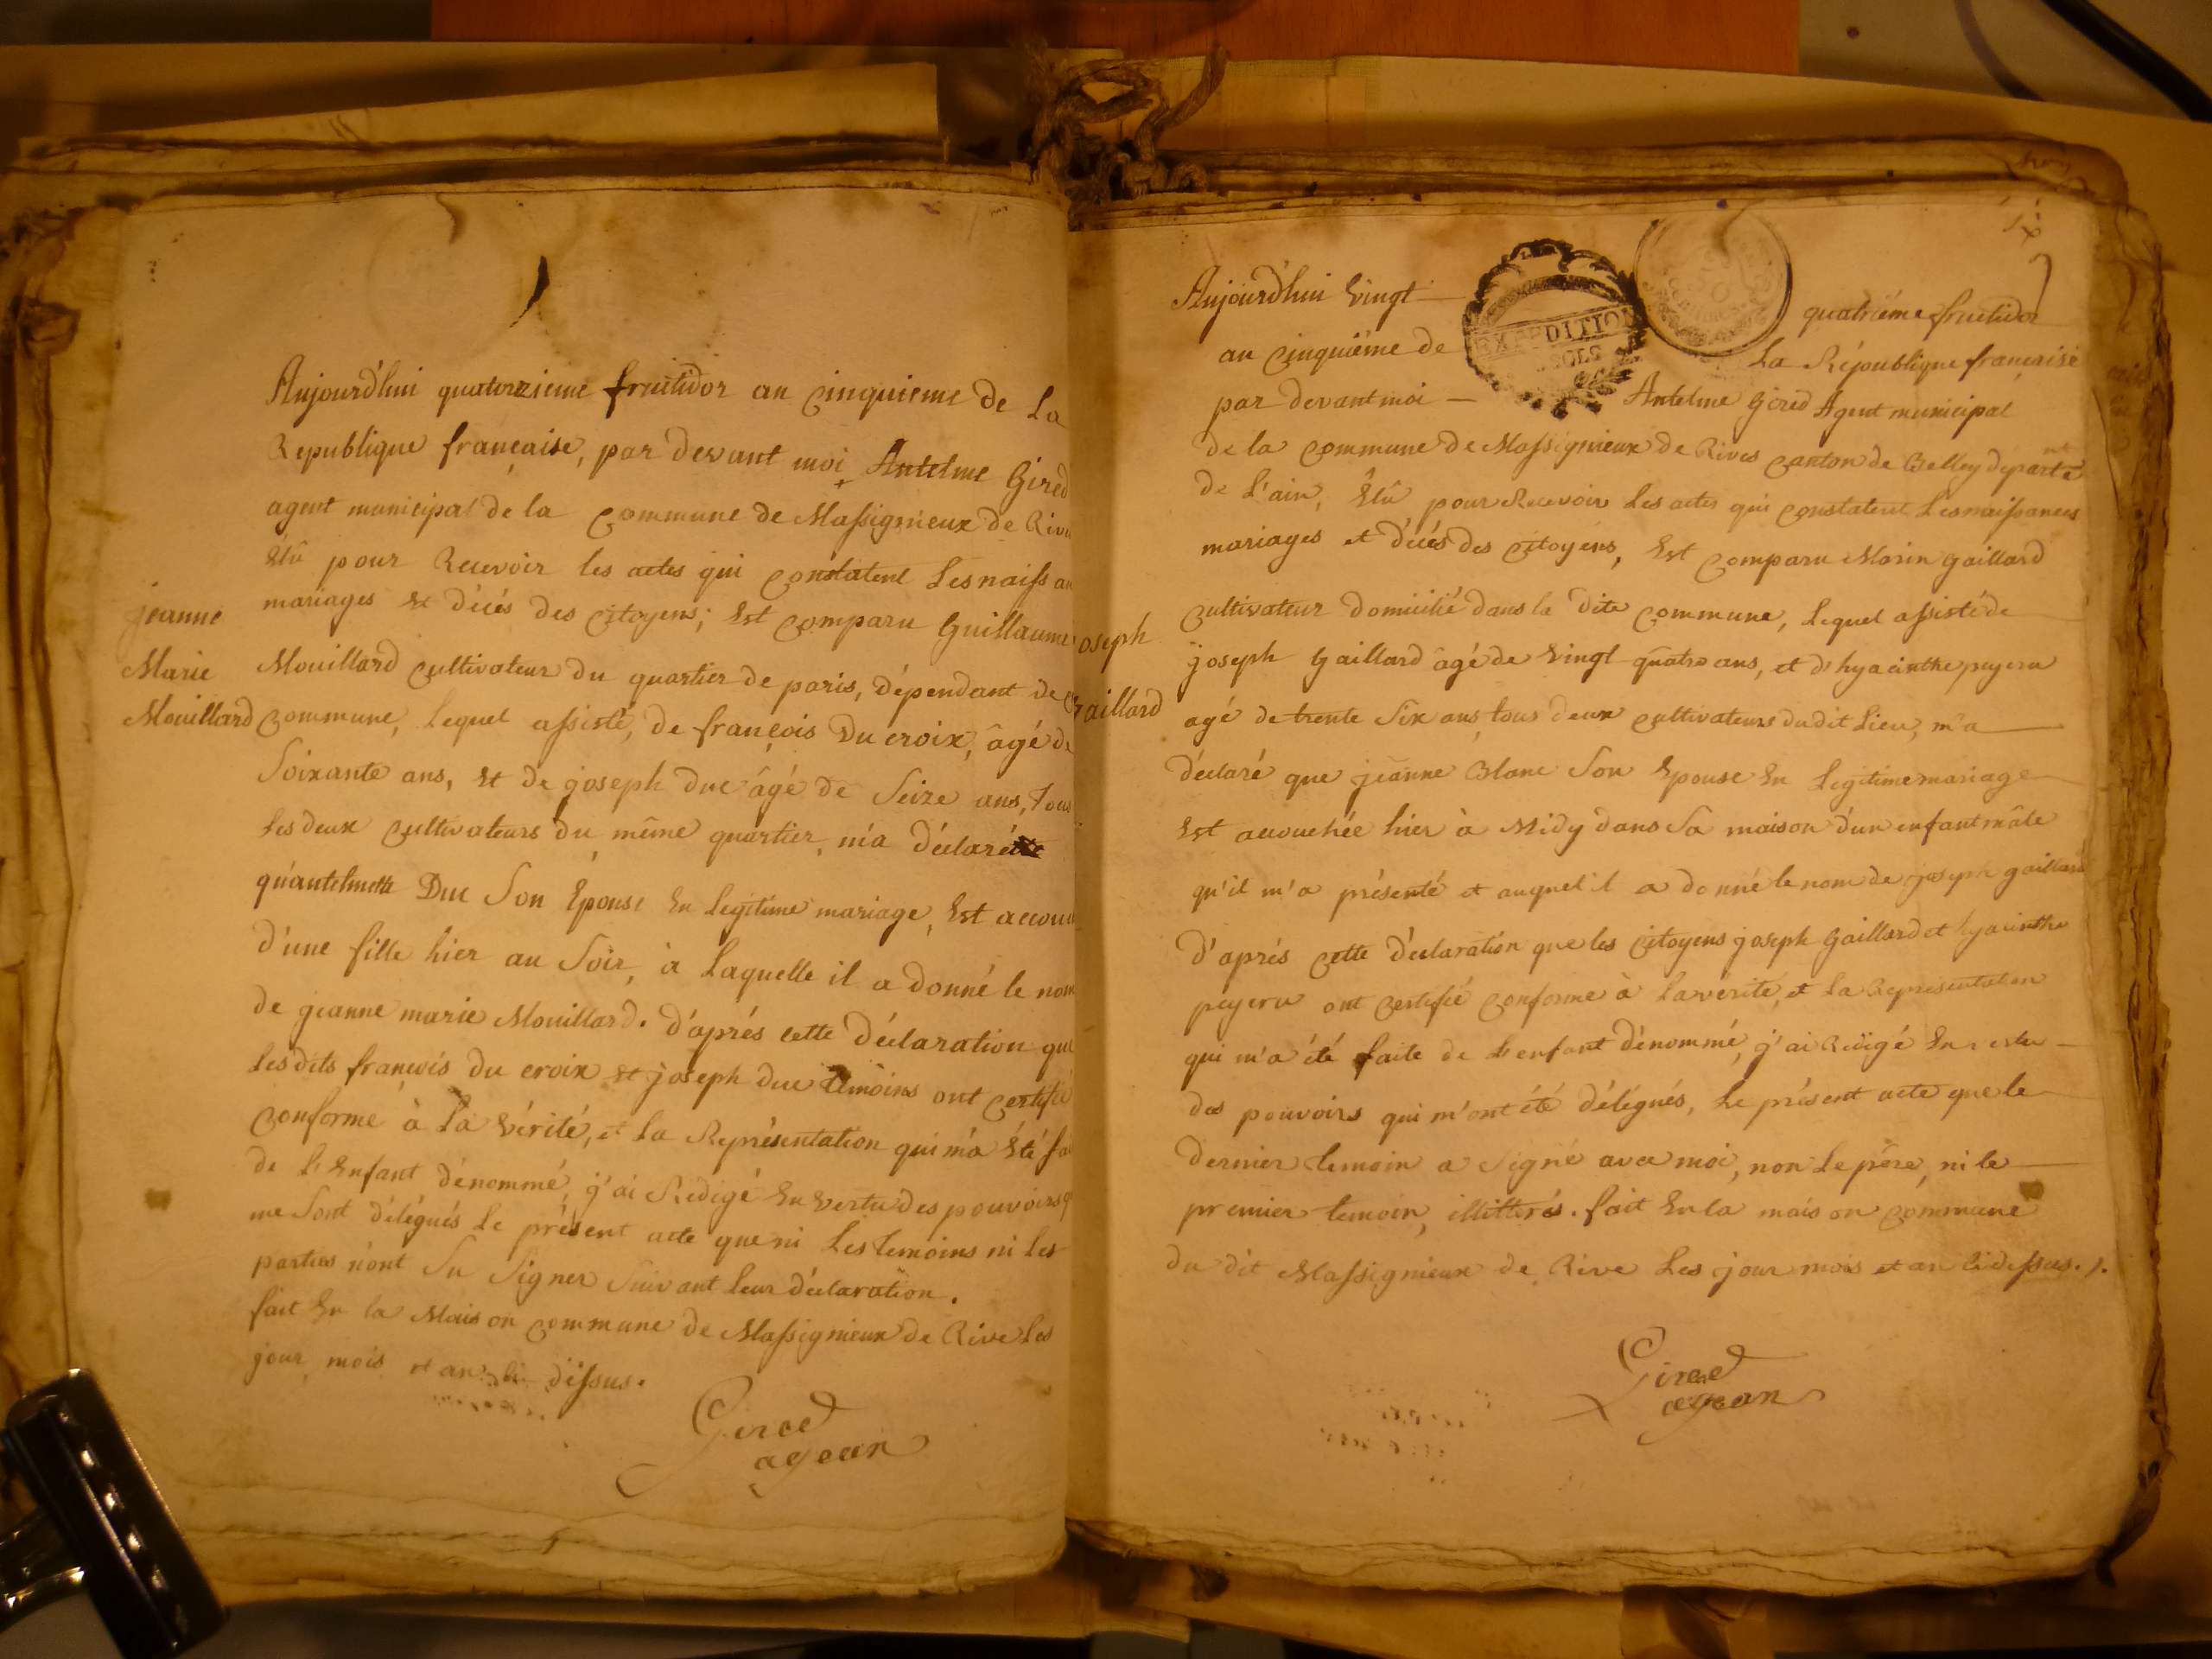 Aujourd'hui quatorzieme fruitidor an cinquieme de la
Republique française, par devant moi Antelme Gired
agent municipal de la commune de Massignieux de Rive
élû pour Recevoir les actes qui constatent les naissan
mariages et décés des citoyens; est comparu Guillaume
Mouillard cultivateur du quartier de paris, dépendant de
commune, lequel assisté, de françois du croix, âgé de
soixante ans, et de joseph duc âgé de seize ans, tous
les deux cultivateurs du même quartier, m'a déclaré
qu'antelmette Duc son épouse en legitime mariage, est accou
d'une fille hier au soir, à laquelle il a donné le nom
de jeanne marie Mouillard. d'aprés cette déclaration que
lesdits françois du croix et joseph duc témoins ont certifié
conforme à la vérité, et la Représentation qui m'a été fai
de l'enfant dénommé, j'ai Rédigé en vertu des pouvoirs q
me sont délégués le présent acte que ni les temoins ni les
parties n'ont su signer suivant leur déclaration.
fait en la Maison commune de Massignieux de Rive les
jour mois et an ci dessus.
Gired
agean
jeanne
Marie
Mouillard
Aujourd'hui vingt quatriéme fruitidor
an cinquiéme de la République française
par devant moi Antelme Gired Agent municipal
de la commune de Massignieux de Rives canton de Belley departe nt
de l'ain, élû pour Recevoir les actes qui constatent les naissances
mariages et décés des citoyens, est comparu Marin gaillard
cultivateur domicilié dans la dite commune, lequel assisté de
joseph gaillard âgé de vingt quatre ans, et d'hyacinthe peyeru
agé de trente six ans, tous deux cultivateurs dudit lieu, m'a
déclaré que jeanne Blanc son épouse en legitime mariage
est accouchée hier à Midy dans sa maison d'un enfant mâle
qu'il m'a présenté et auquel il a donné le nom de joseph gaillard
d'aprés cette déclaration que les citoyens joseph gaillard et hyacinthe
peyeru ont certifié conforme à la vérité, et la Representation
qui m'a été faite de l'enfant dénommé, j'ai Rédigé en vertu
des pouvoirs qui m'ont été délégués, le présent acte que le
dernier temoin a signé avec moi, non le père, ni le
premier temoin, illitterés. fait en la maison commune
du dit Massignieux de Rive les jour mois et an ci dessus.
Gired
agean
oseph
gaillard
EXPEDITION